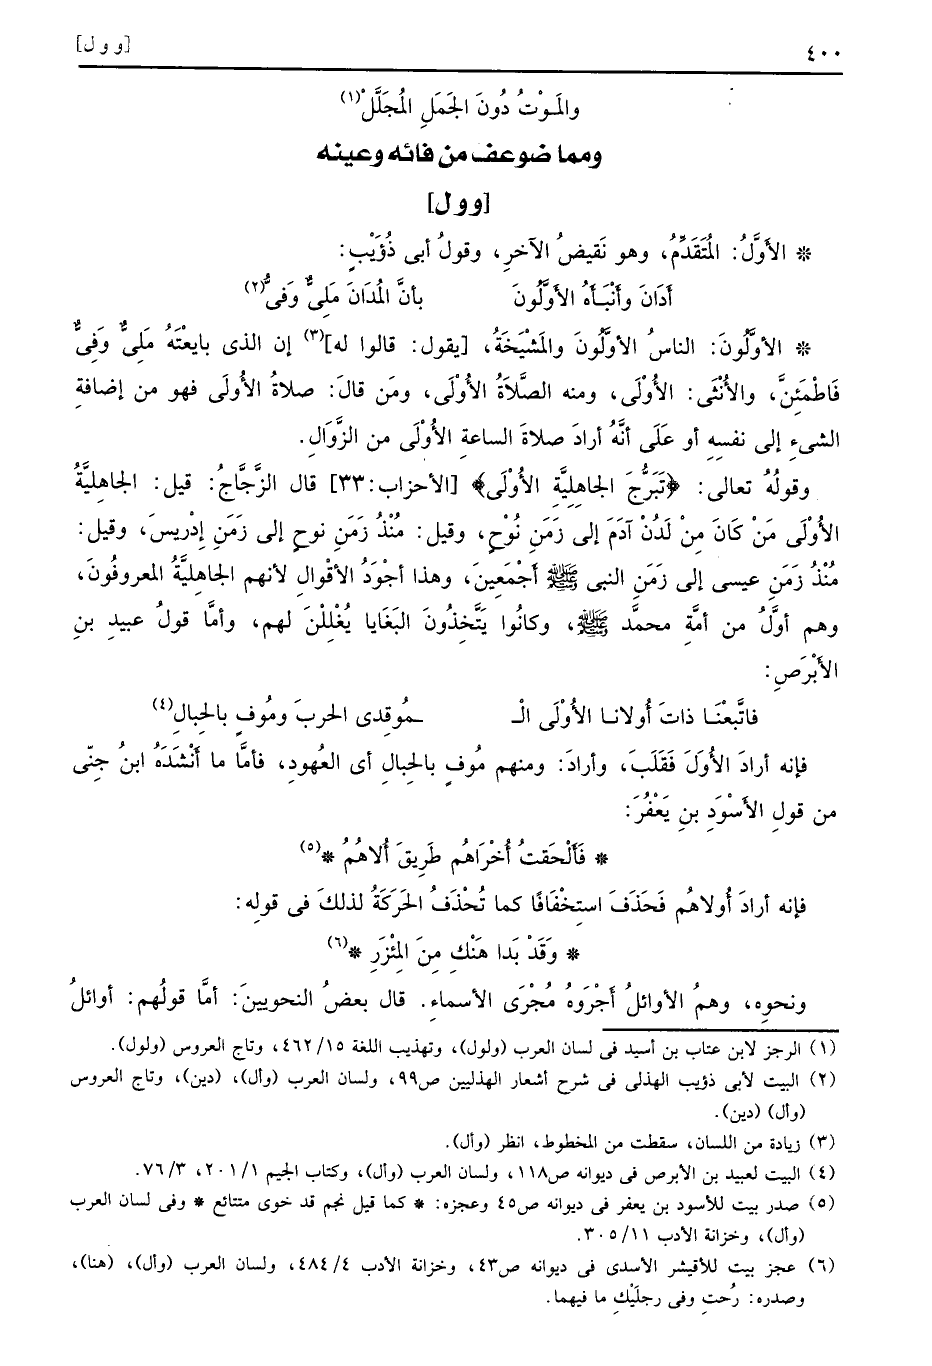 ٤٠٠ [وول]
والمَوْتُ دُونَ الجَمَلِ المُجَلَّلْ(١)
ومما ضوعف من فائه وعينه
[وول]
* الأَوَّلُ: المُتَقَدِّمُ، وهو نَقيضُ الآخرِ، وقولُ أبى ذُؤَيْبٍ:
أَدَانَ وأَنْبَأَهُ الأَوَّلُونَ بأنَّ المُدَانَ مَلِىٌّ وَفِىُّ(٢)
* الأوَّلُونَ: الناسُ الأوَّلُونَ والمَشْيَخَةُ، [يقول: قالوا له](٣) إن الذى بايعْتَهُ مَلِىٌّ وَفِىٌّ
فَاطْمَئِنَّ، والأُنْثَى: الأُوْلَى، ومنه الصَّلاَةُ الأُوْلَى، ومَن قالَ: صلاةُ الأُولَى فهو من إضافةِ
الشىءِ إلى نفسِهِ أو علَى أنَّهُ أرادَ صلاةَ الساعةِ الأُوْلَى من الزَّوَالِ.
وقولُهُ تعالى: ﴿تَبَرُّجَ الجاهليَّةِ الأُولَى﴾ [الأحزاب:٣٣] قال الزَّجَّاجُ: قيل: الجاهليَّةُ
الأُوْلَى مَنْ كَانَ مِنْ لَدُنْ آدَمَ إلى زَمَنِ نُوْحٍ، وقيل: مُنْذُ زَمَنِ نوحٍ إلى زَمَنِ إدْريسَ، وقيل:
مُنْذُ زَمَنِ عيسى إلى زَمَنِ النبى ﷺ أَجْمَعِينَ، وهذا أجْوَدُ الأقْوالِ لأنهم الجاهليَّةُ المعروفُونَ،
وهم أوَّلُ من أمَّةِ محمدٍ ﷺ، وكانُوا يَتَّخِذُونَ البَغَايا يُغْلِلْنَ لهم، وأمَّا قولُ عبيدِ بنِ
الأبْرَصِ:
فاتَّبعْنَا ذاتَ أُولانا الأُوْلَى الْـ ـمُوقدى الحربَ ومُوفٍ بالحِبالِ(٤)
فإنه أرادَ الأُوَلَ فَقَلَبَ، وأرادَ: ومنهم مُوفٍ بالحِبالِ أى العُهودِ، فأمَّا ما أنْشَدَهُ ابنُ جِنّى
من قولِ الأَسْوَدِ بنِ يَعْفُرَ:
* فَأَلْحَقتُ أُخْرَاهُم طَرِيقَ أُلاهُمُ *(٥)
فإنه أرادَ أُولاهُم فَحَذَفَ استِخْفَافًا كما تُحْذَفُ الحَرَكَةُ لذلكَ فى قوله:
* وَقَدْ بَدا هَنْكِ مِنَ المِئْزَرِ *(٦)
ونحوِه، وهمُ الأوائلُ أَجْرَوْهُ مُجْرَى الأسماءِ. قال بعضُ النحويينَ: أمَّا قولُهم: أوائلُ
(١) الرجز لابن عتاب بن أسيد فى لسان العرب (ولول)، وتهذيب اللغة ٤٦٢/١٥، وتاج العروس (ولول).
(٢) البيت لأبى ذؤيب الهذلى فى شرح أشعار الهذليين ص٩٩، ولسان العرب (وأل)، (دين)، وتاج العروس
(وأل) (دين).
(٣) زيادة من اللسان، سقطت من المخطوط، انظر (وأل).
(٤) البيت لعبيد بن الأبرص فى ديوانه ص١١٨، ولسان العرب (وأل)، وكتاب الجيم ٢٠١/١، ٧٦/٣.
(٥) صدر بيت للأسود بن يعفر فى ديوانه ص٤٥ وعجزه: * كما قيل نجم قد خوى متتائع * وفى لسان العرب
(وأل)، وخزانة الأدب ٣٠٥/١١.
(٦) عجز بيت للأقيشر الأسدى فى ديوانه ص٤٣، وخزانة الأدب ٤٨٤/٤، ولسان العرب (وأل)، (هنا)،
وصدره: رُحتِ وفى رجلَيْكِ ما فيهما.